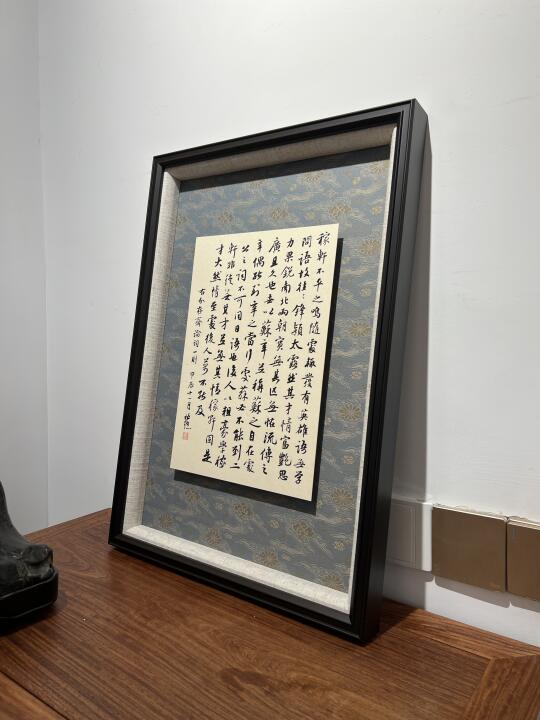 稼軒不平之鳴隨處輒發有英雄語無學
問語故往々鋒穎太露然其才情富艷思
力果銳南北兩朝實無其匹無怪流傳之
廣且久也世以蘇辛並稱蘇之自在處
辛偶能到辛之當行處蘇必不能到二
公之詞不可同日語也後人以粗豪學稼
軒非徒無其才並無其情稼軒固是
才大然情至處後人萬不能及
右介存齋論詞一則 甲辰十一月